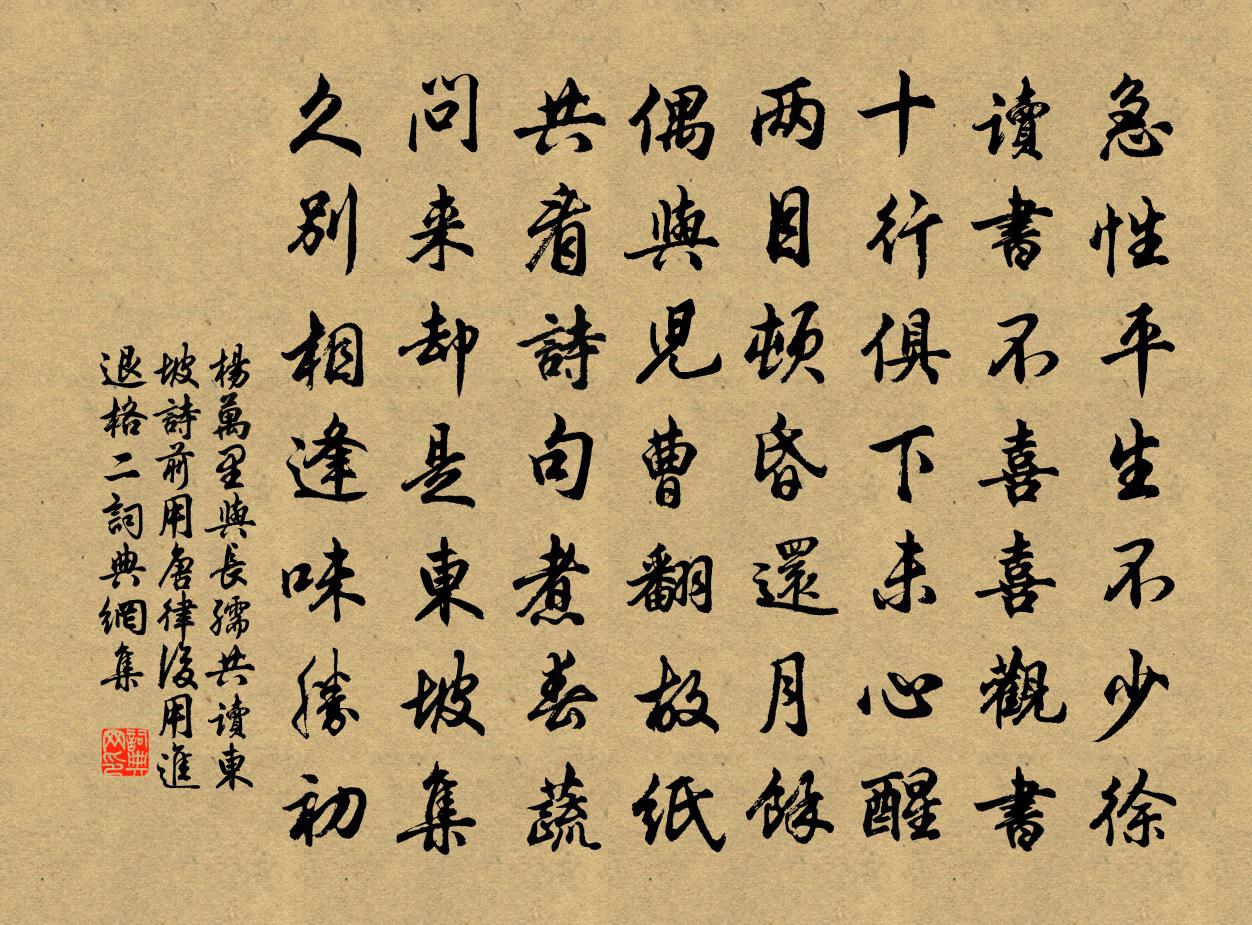 急性平生不少徐
讀書不喜喜觀書
十行俱下未心醒
两目頓昏還月餘
偶與児曹翻故紙
共看詩句煮春蔬
問来却是東坡集
久別相逢味勝初
楊萬里與長孺共讀東
坡詩前用唐律後用進
退格二詞典網集
詞典网印